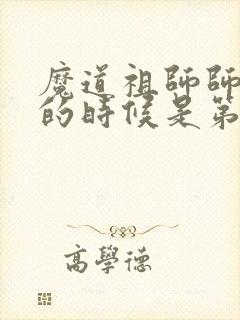 魔道祖師師
的時候是第
高學德